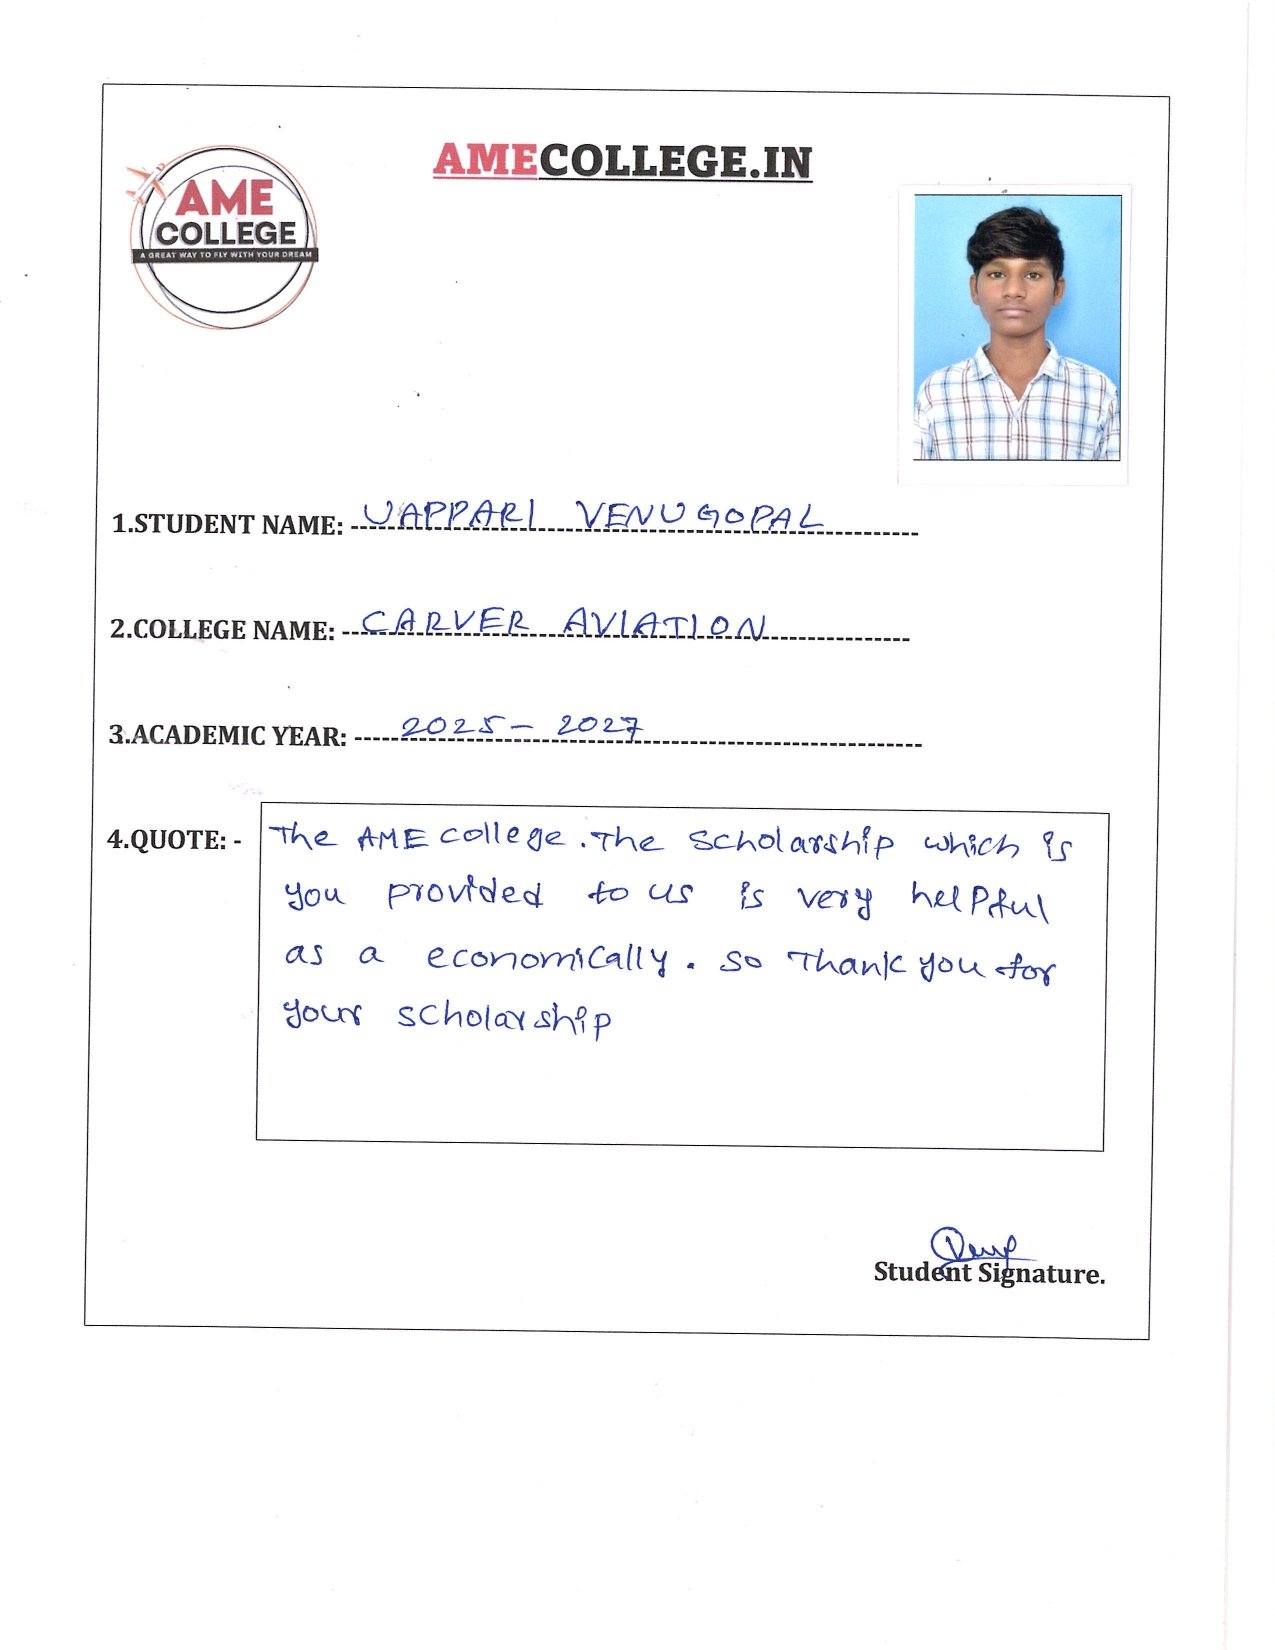 AMECOLLEGE.IN
AME
COLLEGE
A GREAT WAY TO FLY WITH YOUR DREAM
1.STUDENT NAME: UAPPARI VENUGOPAL
2.COLLEGE NAME: CARVER AVIATION
3.ACADEMIC YEAR: 2025 - 2027
4.QUOTE: - The AME college. The scholarship which is
you provided to us is very helpful
as a economically. so Thank you for
your scholarship
Student Signature.